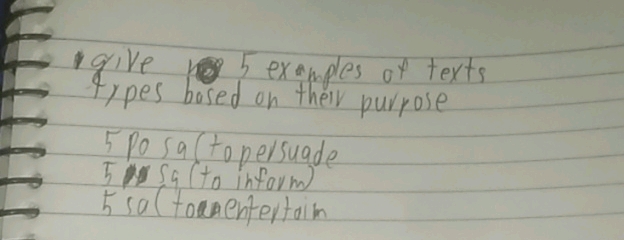 give 5 examples of texts
types based on their purpose
5 po sa (to persuade
5 sa (to inform)
5 sa (to entertaim